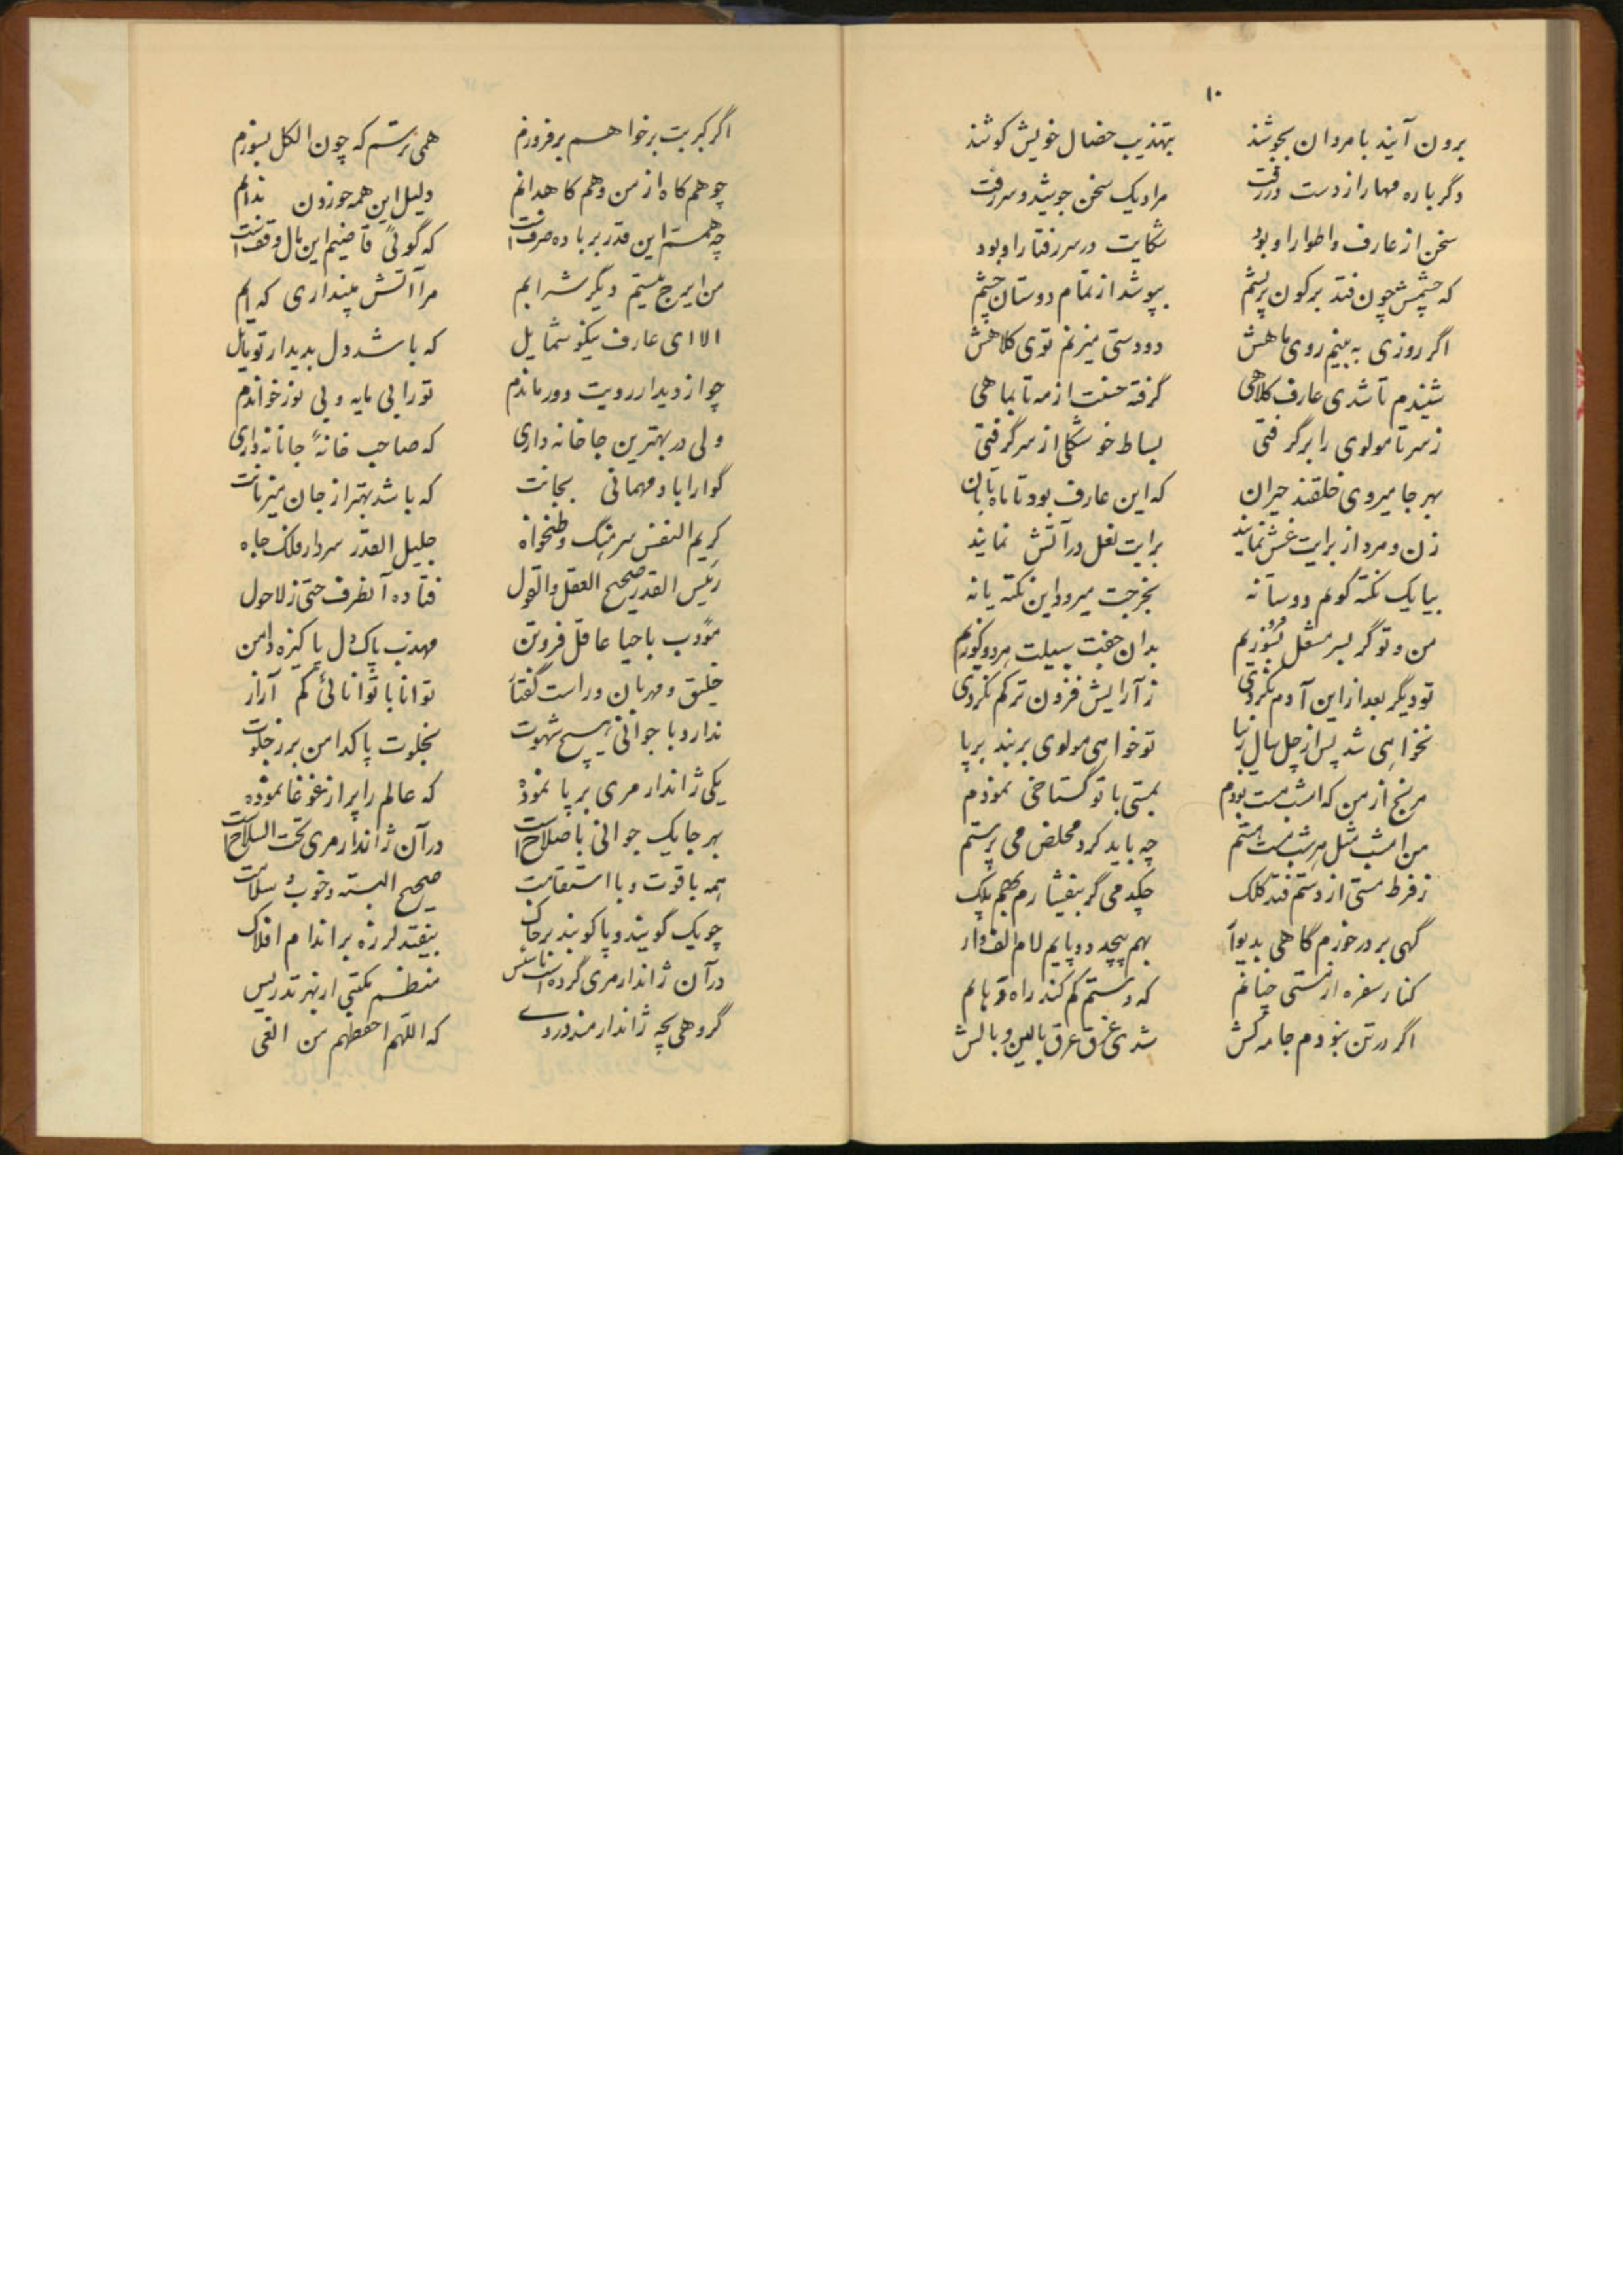 ۱۰
برون آیند با مردان بجوشند بتهذیب خصال خویش کوشند
دگر باره مهار از دست در رفت مرا دیک سخن جوشید و سر رفت
سخن از عارف و اطوار او بود شکایت در سر رفتار او بود
که چشمش چون فتد بر کون پر پشم بپوشد از تمام دوستان چشم
اگر روزی به بینم روی ماهش دو دستی میزنم توی کلاهش
شنیدم تا شدی عارف کلاهی گرفته حسنت از مه تا بماهی
ز سر تا مولوی را بر گرفتی بساط خوشگلی از سر گرفتی
بهر جا میروی خلقند حیران که این عارف بود تا ماه تابان
زن و مرد از برایت غش نمایند برایت نعل در آتش نمایند
بیا یک نکته گویم دوستانه بخرجت میرود این نکته یا نه
من و تو گر بسر مشعل فروزیم بدان جفت سبیلت هر دو کوریم
تو دیگر بعد از این آدم نگردی ز آرایش فزون تر کم نگردی
نخواهی شد پس از چل سال زیبا تو خواهی مولوی بر بند بر پا
مرنج از من که امشب مست بودم بمستی با تو گستاخی نمودم
من امشب مثل هر شب مست مستم چه باید کرد مخلص می پرستم
ز فرط مستی از دستم فتد کلک چکد می گر بیفشارم بهم پلک
گهی بر در خورم گاهی بدیوار بهم پیچد دو پایم لام الف وار
کنار سفره از مستی چنانم که دستم گم کند راه دهانم
اگر در تن نبودم جامه کش شدی غرق عرق بالین و بالش
اگر کبریت بر خواهم بر فروزم همی ترسم که چون الکل بسوزم
چو هم کاه از من و هم کاهدانم دلیل این همه خوردن ندانم
چه همستم این قدر بر باده صرفست که گوئی قاضیم این مال وقفست
من ایرج نیستم دیگر شرابم مرا آتش مپنداری که آبم
الا ای عارف نیکو شمایل که باشد دل بدیدار تو مایل
چو از دیدار رویت دور ماندم ترا بی مایه و بی نور خواندم
ولی در بهترین جا خانه داری که صاحب خانهٔ جانانه داری
گوارا باد مهمانی بجانت که باشد بهتر از جان میزبانت
کریم النفس سرهنگ وطنخواه جلیل القدر سردار فلک جاه
رئیس القدر صحیح العقل والقول فتاده آنطرف حتی ز لاحول
مؤدب با حیا عاقل فروتن مهذب پاک دل پاکیزه دامن
خلیق و مهربان و راست گفتار توانا با توانائی کم آزار
ندارد با جوانی هیچ شهوت بخلوت پاکدامن تر ز جلوت
یکی ژاندارمری بر پا نموده که عالم را پر از غوغا نموده
بهر جا یک جوانی با صلاح است در آن ژاندارمری تحت السلاح است
همه با قوت و با استقامت صحیح البنیه و خوب و سلامت
چو یک گویند و پا کوبند بر خاک بیفتد لرزه بر اندام افلاک
در آن ژاندارمری کرده است تأسیس منظم مکتبی از بهر تدریس
گروهی بچه ژاندارمند در وی که اللهم احفظهم من الغی